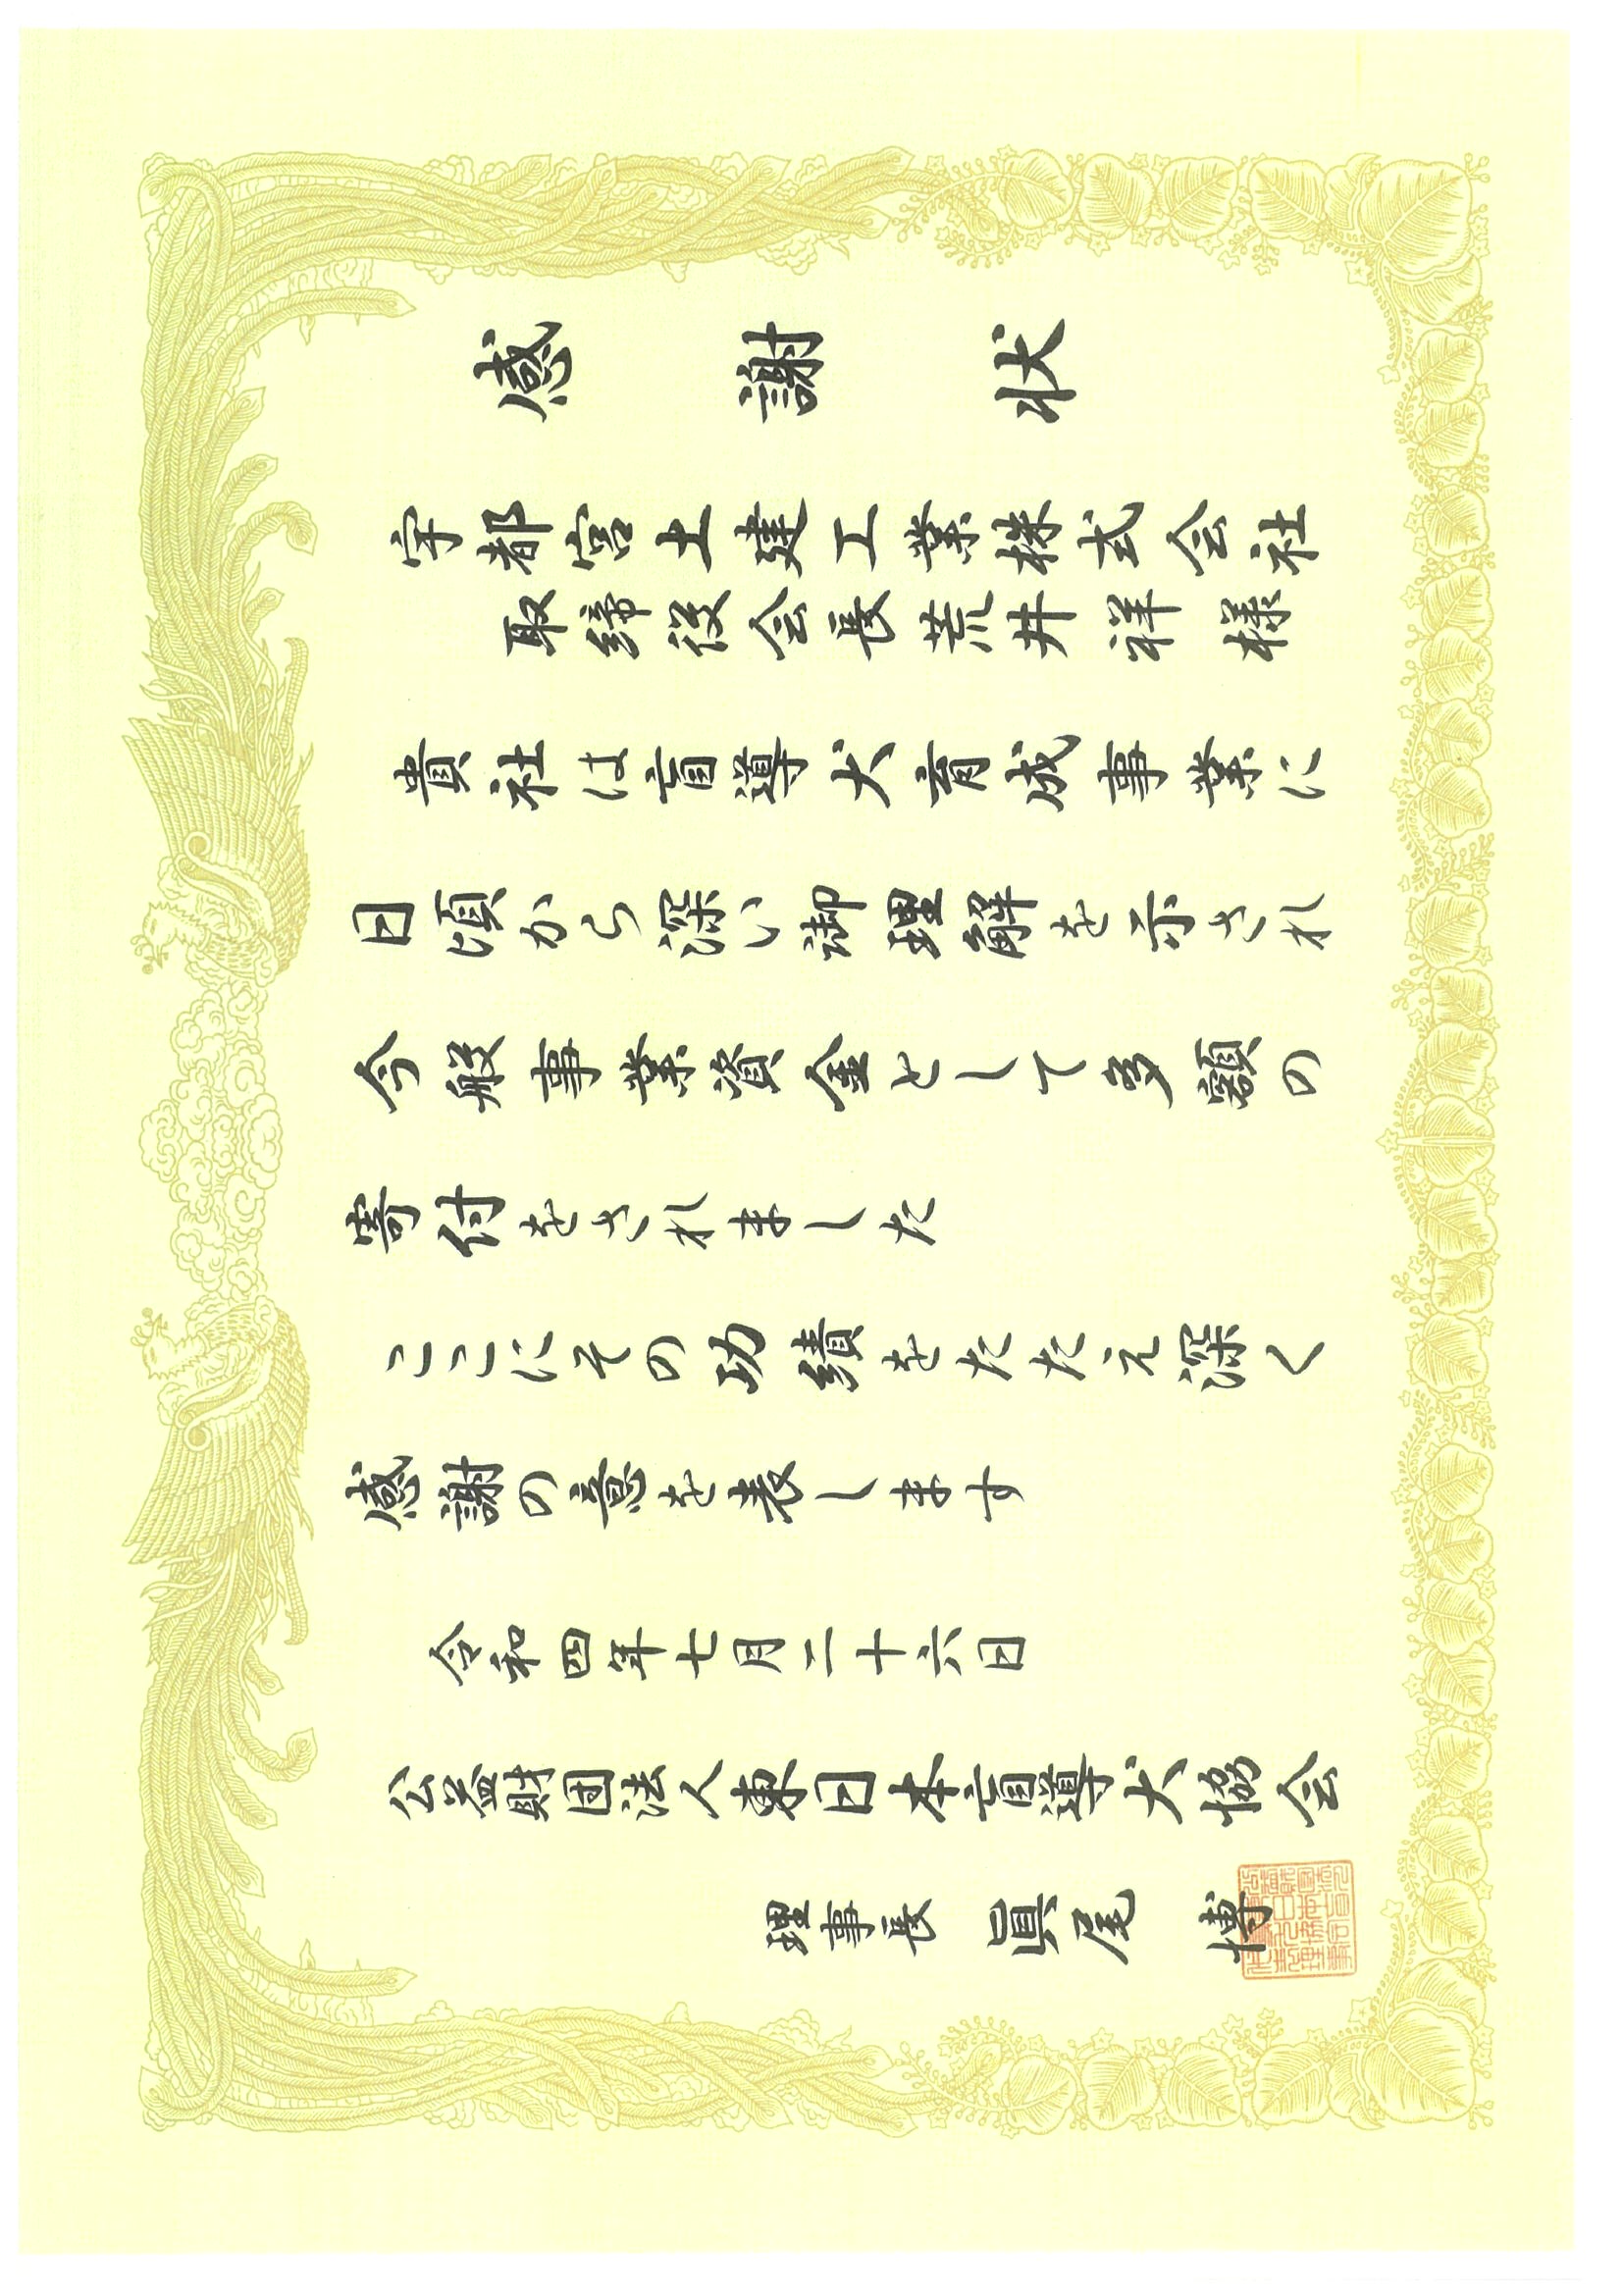 感謝状
宇都宮土建工業株式会社
取締役会長荒井祥様
貴社は盲導犬育成事業に
日頃から深い御理解を示され
今般事業資金として多額の
寄付をされました
ここにその功績をたたえ深く
感謝の意を表します
令和四年七月二十六日
公益財団法人東日本盲導犬協会
理事長 眞尾 博